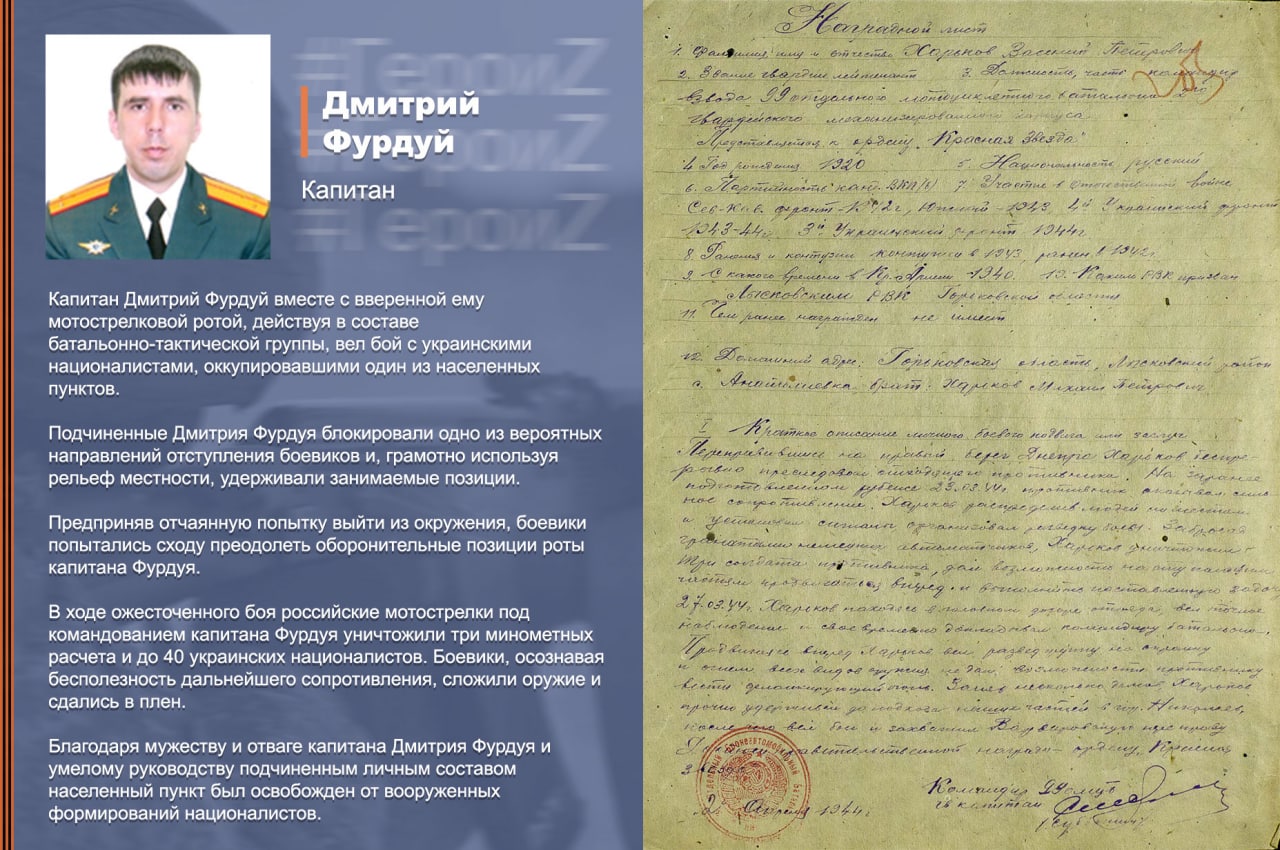 #ГероиZ
#ГероиZ
#ГероиZ
Дмитрий
Фурдуй
Капитан
Капитан Дмитрий Фурдуй вместе с вверенной ему
мотострелковой ротой, действуя в составе
батальонно-тактической группы, вел бой с украинскими
националистами, оккупировавшими один из населенных
пунктов.
Подчиненные Дмитрия Фурдуя блокировали одно из вероятных
направлений отступления боевиков и, грамотно используя
рельеф местности, удерживали занимаемые позиции.
Предприняв отчаянную попытку выйти из окружения, боевики
попытались сходу преодолеть оборонительные позиции роты
капитана Фурдуя.
В ходе ожесточенного боя российские мотострелки под
командованием капитана Фурдуя уничтожили три минометных
расчета и до 40 украинских националистов. Боевики, осознавая
бесполезность дальнейшего сопротивления, сложили оружие и
сдались в плен.
Благодаря мужеству и отваге капитана Дмитрия Фурдуя и
умелому руководству подчиненным личным составом
населенный пункт был освобожден от вооруженных
формирований националистов.
Наградной лист
1. Фамилия, имя и отчество Харьков Петрович
2. Звание гвардии лейтенант 3. Должность, часть командир
взвода 99 отдельного мотоциклетного батальона 2го
гвардейского механизированного корпуса
Представляется к ордену "Красная Звезда"
4. Год рождения 1920 5. Национальность русский
6. Партийность канд. ВКП(б) 7. Участие в отечественной войне
Сев-Кав. фронт 42г, Южный - 1943 4й Украинский фронт
1943-44г. 3й Украинский фронт 1944г
8. Ранения и контузии контужен в 1943, ранен в 1942г.
9. С какого времени в Кр. Армии - 1940. 10. Каким РВК призван
Лысковским РВК Горьковской области
11. Чем ранее награжден не имеет
12. Домашний адрес: Горьковская область, Лысковский район
с. брат: Харьков Михаил Петрович
I Краткое описание личного боевого подвига или заслуг
Переправившись на правый берег Днепра Харьков беспре-
рывно преследовал отходящего противника. На заранее
подготовленном рубеже 23.03.44г противник оказывал силь-
ное сопротивление. Харьков распределив людей по местам
и установив сигналы организовал разведку боем. Забросав
гранатами немецких автоматчиков, Харьков уничтожил
три солдата противника, дал возможность наступающим
частям продвигаться вперед и выполнить поставленную задачу
27.03.44г. Харьков находясь в головном дозоре отряда, вел
наблюдение и своевременно докладывал командиру батальона.
Продвигаясь вперед Харьков вел разведгруппу на окраину
и огнем всех видов оружия не дал возможности противнику
вести огонь. Заняв несколько домов Харьков
прочно удерживал до подхода наших частей в гор. Николаев,
после чего вел бой и захватил
правительственной награды - ордену "Красная
Звезда"
2 Апреля 1944г.
Командир
гв капитан